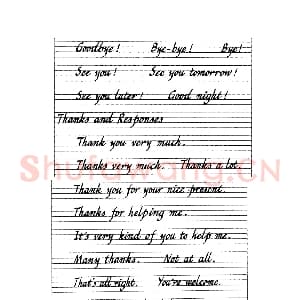 Goodbye! Bye-bye! Bye!
See you! See you tomorrow!
See you later! Good night!
Thanks and Responses
Thank you very much.
Thanks very much. Thanks a lot.
Shufawang.CN
Thank you for your nice present.
Thanks for helping me.
It's very kind of you to help me.
Many thanks. Not at all.
That's all right. You're welcome.